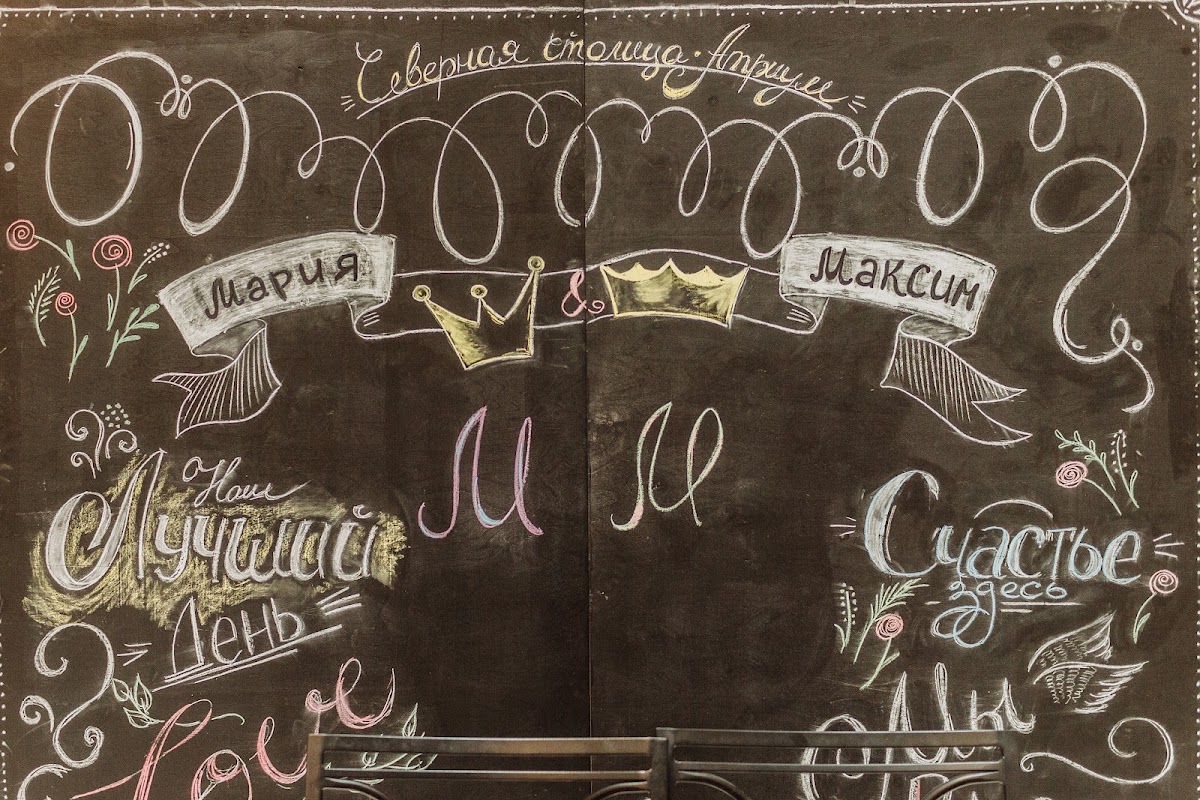 Северная столица · Атриум
Мария & Максим
М М
Наш
Лучший
День
Love
Счастье
здесь
Мы